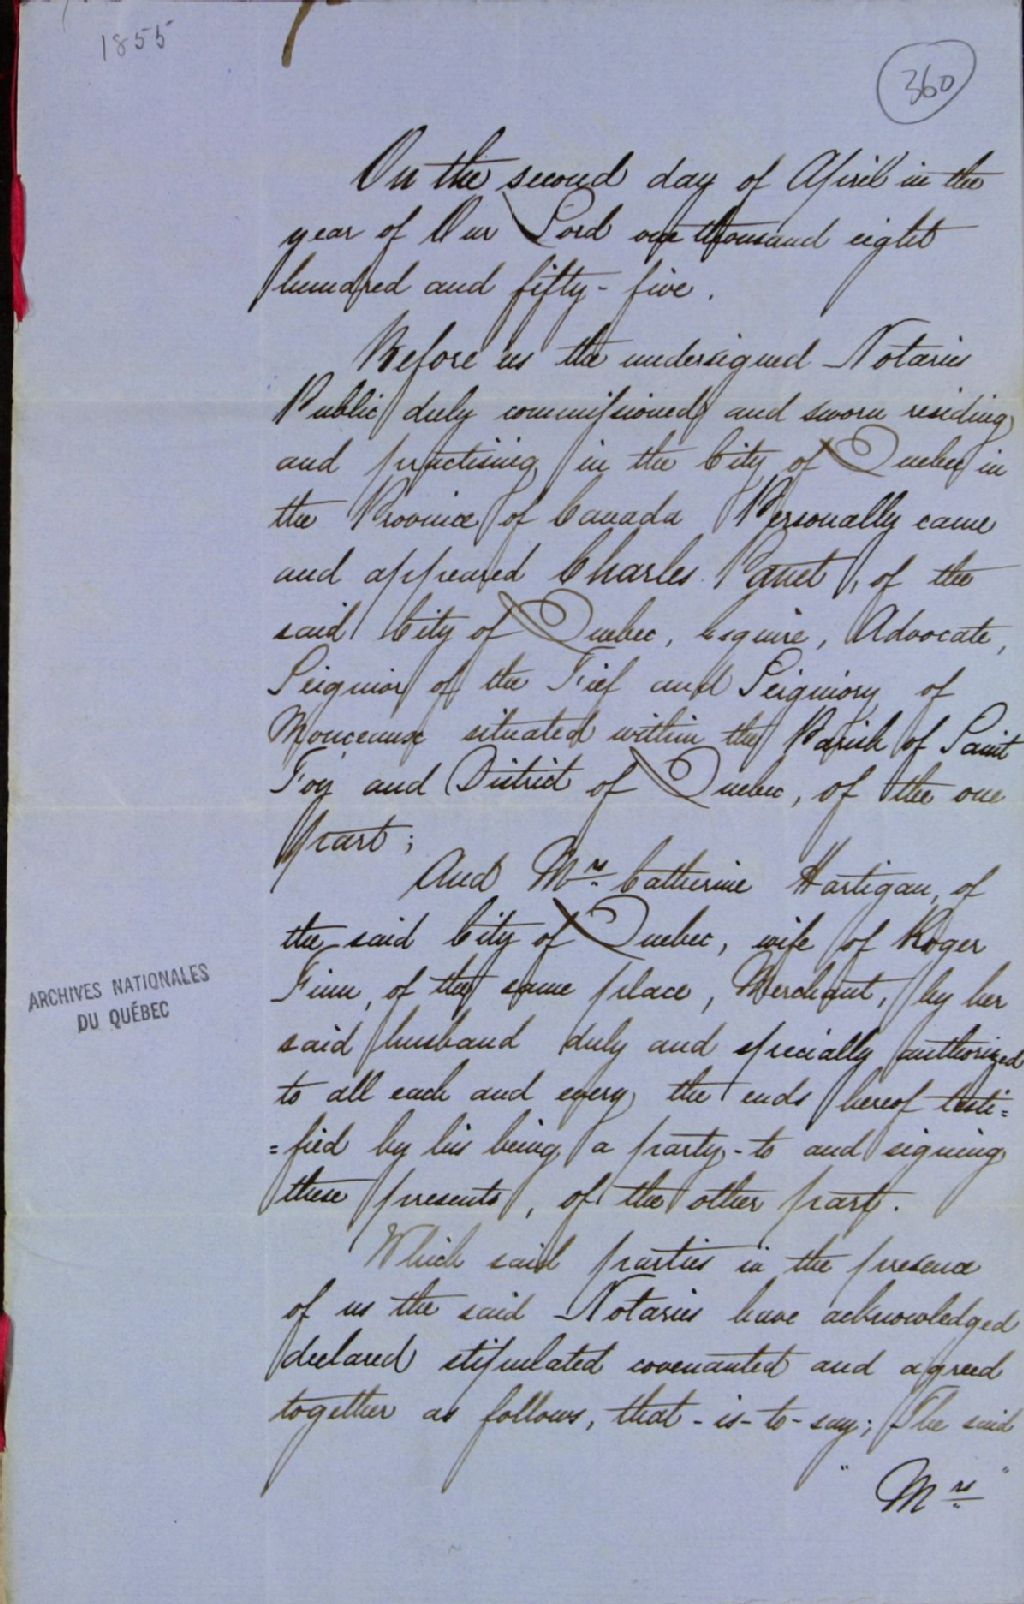 1855
360
On the second day of April in the
year of Our Lord one thousand eight
hundred and fifty-five.
Before us the undersigned Notaries
Public duly commissioned and sworn residing
and practising in the City of Quebec in
the Province of Canada Personally came
and appeared Charles Panet, of the
said City of Quebec, Esquire, Advocate,
Seignior of the Fief and Seigniory of
Monceaux situated within the Parish of Saint
Foy and District of Quebec, of the one
part;
And Mrs. Catherine Hartigan, of
the said City of Quebec, wife of Roger
Finn, of the same place, Merchant, by her
said husband duly and specially authorized
to all each and every the ends hereof testi=
=fied by his being a party-to and signing
these presents, of the other part.
Which said parties in the presence
of us the said Notaries have acknowledged
declared stipulated covenanted and agreed
together as follows, that-is-to-say; The said
" Mrs "
ARCHIVES NATIONALES
DU QUÉBEC